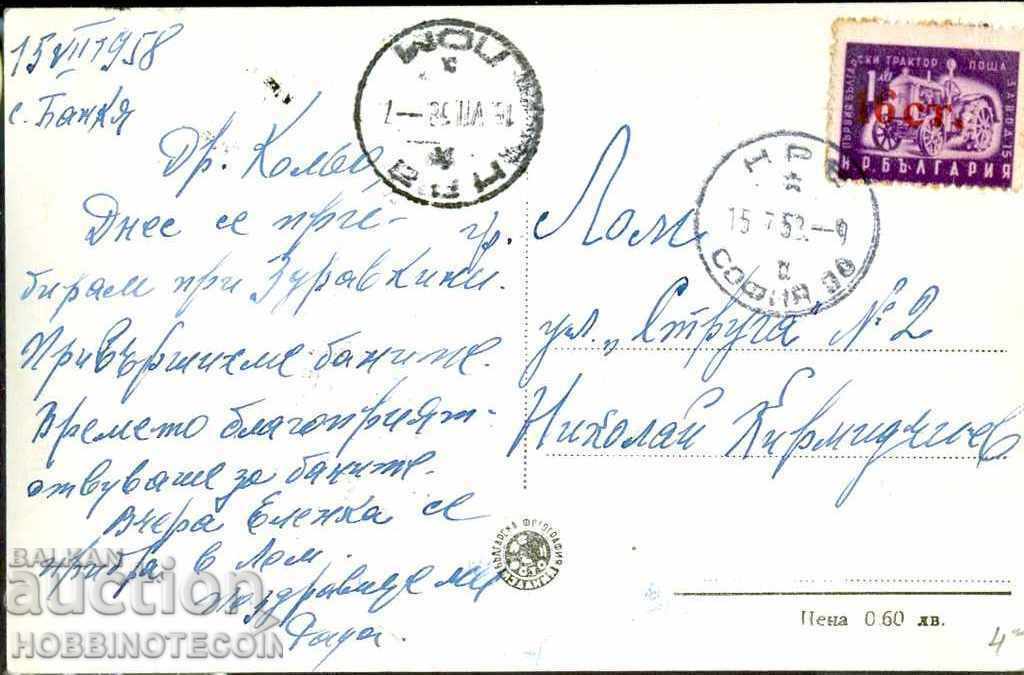 15 VII 1958
с. Банкя
Др. Кольо,
Днес се при-
бирам при Здравкини.
Привършихме баните.
Времето благоприят-
ствуваше за баните.
Вчера Еленка се
прибра в Лом.
Поздравявам
гр. Лом
ул. „Струга" № 2
Николай Кирмидчиев
ЛОМ
15 VII 58 —7
15. 7. 58. — 9
СОФИЯ
ПЪРВИЯ БЪЛГАРСКИ ТРАКТОР
ПОЩА
1 лв
16 ст.
Н.Р. БЪЛГАРИЯ
БЪЛГАРСКА ФОТОГРАФИЯ
Цена 0.60 лв.
4
BALKAN
auction
HOBBINOTECOIN